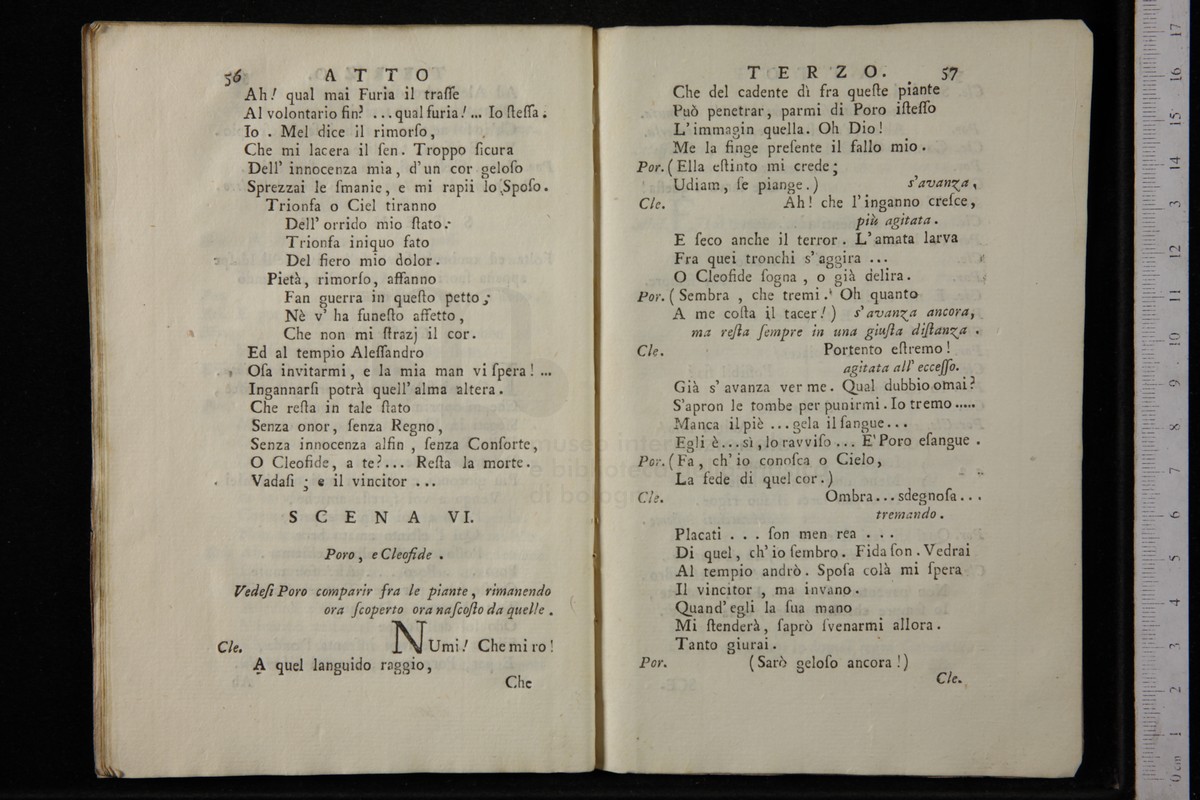 56 ATTO
Ah! qual mai Furia il traſſe
Al volontario fin? ...qual furia!... Io ſteſſa.
Io. Mel dice il rimorſo,
Che mi lacera il ſen. Troppo ſicura
Dell' innocenza mia, d'un cor geloſo
Sprezzai le ſmanie, e mi rapii lo Spoſo.
Trionfa o Ciel tiranno
Dell' orrido mio ſtato:
Trionfa iniquo fato
Del fiero mio dolor.
Pietà, rimorſo, affanno
Fan guerra in queſto petto;
Nè v' ha funeſto affetto,
Che non mi ſtrazj il cor.
Ed al tempio Aleſſandro
Oſa invitarmi, e la mia man vi ſpera! ...
Ingannarſi potrà quell' alma altera.
Che reſta in tale ſtato
Senza onor, ſenza Regno,
Senza innocenza alfin, ſenza Conſorte,
O Cleofide, a te?... Reſta la morte.
Vadaſi; e il vincitor ...
SCENA VI.
Poro, e Cleofide.
Vedeſi Poro comparir fra le piante, rimanendo
ora ſcoperto ora naſcoſto da quelle.
Cle. NUmi! Che miro!
A quel languido raggio,
Che
TERZO. 57
Che del cadente dì fra queſte piante
Può penetrar, parmi di Poro iſteſſo
L'immagin quella. Oh Dio!
Me la finge preſente il fallo mio.
Por. (Ella eſtinto mi crede;
Udiam, ſe piange.) s'avanza,
Cle. Ah! che l'inganno creſce,
più agitata.
E ſeco anche il terror. L'amata larva
Fra quei tronchi s'aggira ...
O Cleofide ſogna, o già delira.
Por. (Sembra, che tremi. Oh quanto
A me coſta il tacer!) s'avanza ancora,
ma reſta ſempre in una giuſta diſtanza.
Cle. Portento eſtremo!
agitata all' ecceſſo.
Già s'avanza ver me. Qual dubbio omai?
S'apron le tombe per punirmi. Io tremo.....
Manca il piè ...gela il ſangue...
Egli è...sì, lo ravviſo ... E' Poro eſangue.
Por. (Fa, ch'io conoſca o Cielo,
La fede di quel cor.)
Cle. Ombra...sdegnoſa...
tremando.
Placati ... ſon men rea ...
Di quel, ch'io ſembro. Fida ſon. Vedrai
Al tempio andrò. Spoſa colà mi ſpera
Il vincitor, ma invano.
Quand'egli la ſua mano
Mi ſtenderà, ſaprò ſvenarmi allora.
Tanto giurai.
Por. (Sarò geloſo ancora!)
Cle.